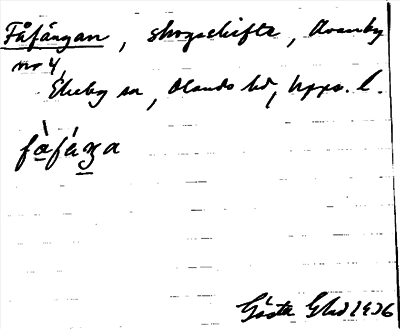 Fåfängan, skogsskifte, Ovanby
nr 4,
Ekeby sn, Olands hd, Upps. l.
fåfáŋa
Gösta Glad 1936